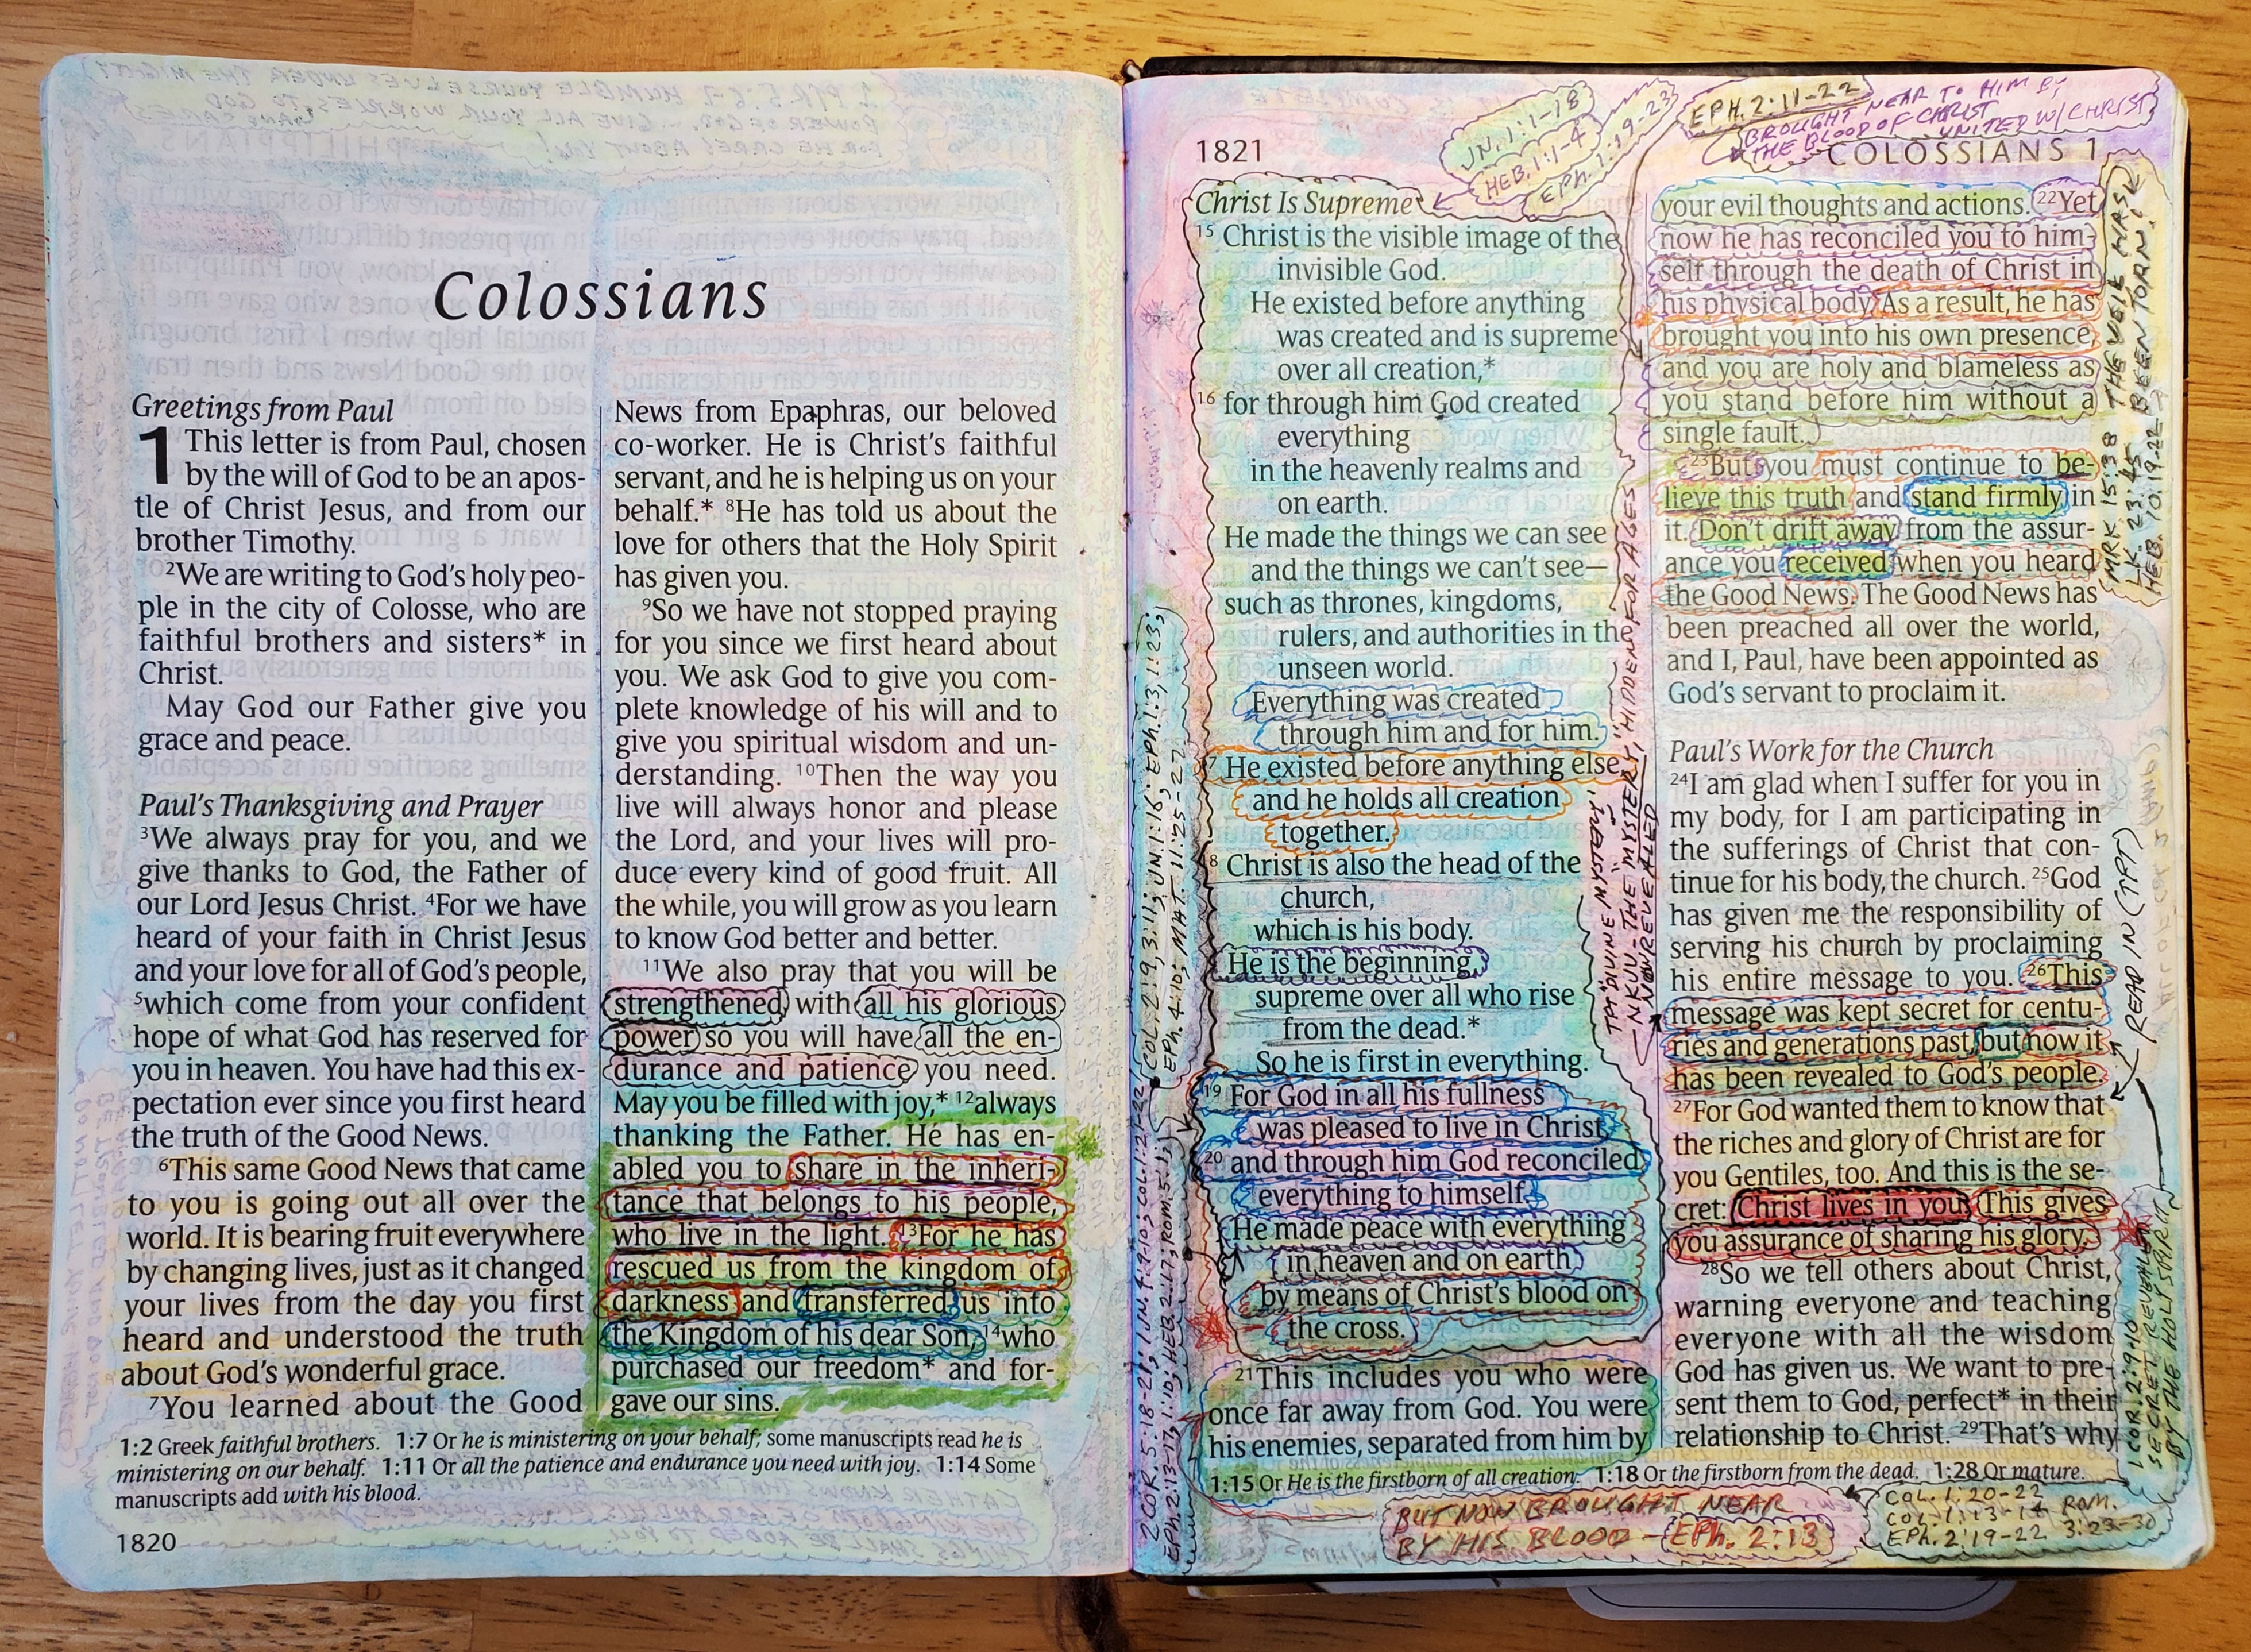 Colossians
Greetings from Paul
1 This letter is from Paul, chosen
by the will of God to be an apos-
tle of Christ Jesus, and from our
brother Timothy.
2We are writing to God's holy peo-
ple in the city of Colosse, who are
faithful brothers and sisters* in
Christ.
May God our Father give you
grace and peace.
Paul's Thanksgiving and Prayer
3We always pray for you, and we
give thanks to God, the Father of
our Lord Jesus Christ. 4For we have
heard of your faith in Christ Jesus
and your love for all of God's people,
5which come from your confident
hope of what God has reserved for
you in heaven. You have had this ex-
pectation ever since you first heard
the truth of the Good News.
6This same Good News that came
to you is going out all over the
world. It is bearing fruit everywhere
by changing lives, just as it changed
your lives from the day you first
heard and understood the truth
about God's wonderful grace.
7You learned about the Good
News from Epaphras, our beloved
co-worker. He is Christ's faithful
servant, and he is helping us on your
behalf.* 8He has told us about the
love for others that the Holy Spirit
has given you.
9So we have not stopped praying
for you since we first heard about
you. We ask God to give you com-
plete knowledge of his will and to
give you spiritual wisdom and un-
derstanding. 10Then the way you
live will always honor and please
the Lord, and your lives will pro-
duce every kind of good fruit. All
the while, you will grow as you learn
to know God better and better.
11We also pray that you will be
strengthened with all his glorious
power so you will have all the en-
durance and patience you need.
May you be filled with joy,* 12always
thanking the Father. He has en-
abled you to share in the inheri-
tance that belongs to his people,
who live in the light. 13For he has
rescued us from the kingdom of
darkness and transferred us into
the Kingdom of his dear Son, 14who
purchased our freedom* and for-
gave our sins.
1:2 Greek faithful brothers. 1:7 Or he is ministering on your behalf; some manuscripts read he is
ministering on our behalf. 1:11 Or all the patience and endurance you need with joy. 1:14 Some
manuscripts add with his blood.
1820
1821
COLOSSIANS 1
JN. 1:1-18
HEB. 1:1-4
EPH. 1:19-23
EPH. 2:11-22
BROUGHT NEAR TO HIM BY
THE BLOOD OF CHRIST
UNITED W/ CHRIST
Christ Is Supreme
15 Christ is the visible image of the
invisible God.
He existed before anything
was created and is supreme
over all creation,*
16 for through him God created
everything
in the heavenly realms and
on earth.
He made the things we can see
and the things we can't see—
such as thrones, kingdoms,
rulers, and authorities in the
unseen world.
Everything was created
through him and for him.
17 He existed before anything else,
and he holds all creation
together.
18 Christ is also the head of the
church,
which is his body.
He is the beginning,
supreme over all who rise
from the dead.*
So he is first in everything.
19 For God in all his fullness
was pleased to live in Christ,
20 and through him God reconciled
everything to himself.
He made peace with everything
in heaven and on earth
by means of Christ's blood on
the cross.
21This includes you who were
once far away from God. You were
his enemies, separated from him by
your evil thoughts and actions. 22Yet
now he has reconciled you to him-
self through the death of Christ in
his physical body. As a result, he has
brought you into his own presence,
and you are holy and blameless as
you stand before him without a
single fault.
23But you must continue to be-
lieve this truth and stand firmly in
it. Don't drift away from the assur-
ance you received when you heard
the Good News. The Good News has
been preached all over the world,
and I, Paul, have been appointed as
God's servant to proclaim it.
Paul's Work for the Church
24I am glad when I suffer for you in
my body, for I am participating in
the sufferings of Christ that con-
tinue for his body, the church. 25God
has given me the responsibility of
serving his church by proclaiming
his entire message to you. 26This
message was kept secret for centu-
ries and generations past, but now it
has been revealed to God's people.
27For God wanted them to know that
the riches and glory of Christ are for
you Gentiles, too. And this is the se-
cret: Christ lives in you. This gives
you assurance of sharing his glory.
28So we tell others about Christ,
warning everyone and teaching
everyone with all the wisdom
God has given us. We want to pre-
sent them to God, perfect* in their
relationship to Christ. 29That's why
1:15 Or He is the firstborn of all creation. 1:18 Or the firstborn from the dead. 1:28 Or mature.
COL. 2:9, 3:11; JN. 1:16; EPH. 1:3, 1:23;
EPH. 4:10; MAT. 11:25-27
TPT "DIVINE MYSTERY"
NKJV - THE "MYSTERY" HIDDEN FOR AGES
NOW REVEALED
MRK 15:38 THE VEIL HAS
LK. 23:45 BEEN TORN!
HEB. 10:19-22
READ IN (TPT)
1 COR. 2:9-10
SECRET REVEALED
BY THE HOLY SPIRIT
BUT NOW BROUGHT NEAR
BY HIS BLOOD - EPH. 2:13
COL. 1:20-22
COL. 1:13-14 ROM.
EPH. 2:19-22 3:23-30